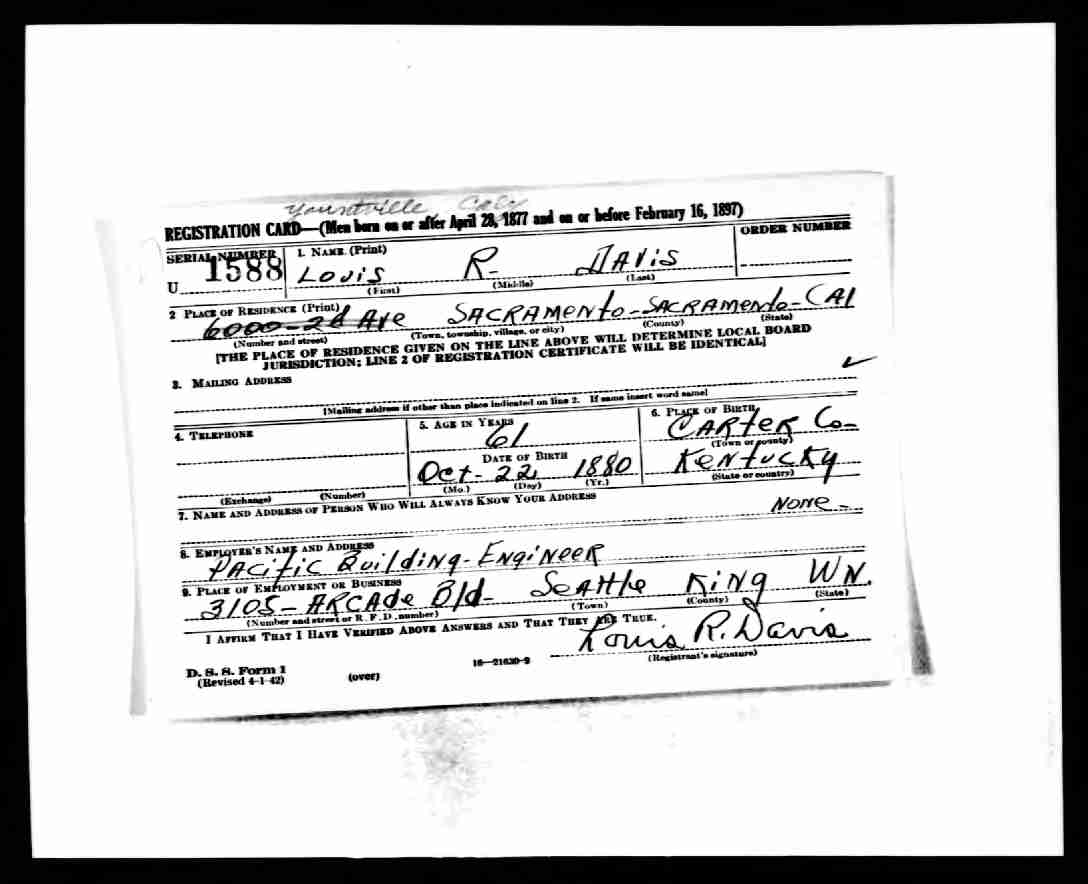 Yountville Caly
REGISTRATION CARD—(Men born on or after April 28, 1877 and on or before February 16, 1897)
SERIAL NUMBER 1. NAME (Print) ORDER NUMBER
U 1588 LOUIS R- DAVIS
(First) (Middle) (Last)
2 PLACE OF RESIDENCE (Print)
6000-2d Ave SACRAMENTO-SACRAMENTO-CAl
(Number and street) (Town, township, village, or city) (County) (State)
[THE PLACE OF RESIDENCE GIVEN ON THE LINE ABOVE WILL DETERMINE LOCAL BOARD
JURISDICTION; LINE 2 OF REGISTRATION CERTIFICATE WILL BE IDENTICAL]
3. MAILING ADDRESS
[Mailing address if other than place indicated on line 2. If same insert word same]
4. TELEPHONE 5. AGE IN YEARS 6. PLACE OF BIRTH
61 CARTER Co-
DATE OF BIRTH (Town or county)
Oct- 22 1880 KENTUCKY
(Exchange) (Number) (Mo.) (Day) (Yr.) (State or country)
7. NAME AND ADDRESS OF PERSON WHO WILL ALWAYS KNOW YOUR ADDRESS
None-
8. EMPLOYER'S NAME AND ADDRESS
PACific Building-ENgiNeeR
9. PLACE OF EMPLOYMENT OR BUSINESS
3105-ARCAde Bld- SeAttle KiNg WN.
(Number and street or R. F. D. number) (Town) (County) (State)
I AFFIRM THAT I HAVE VERIFIED ABOVE ANSWERS AND THAT THEY ARE TRUE.
Louis R. Davis
D. S. S. Form 1 16—21630-2 (Registrant's signature)
(Revised 4-1-42) (over)